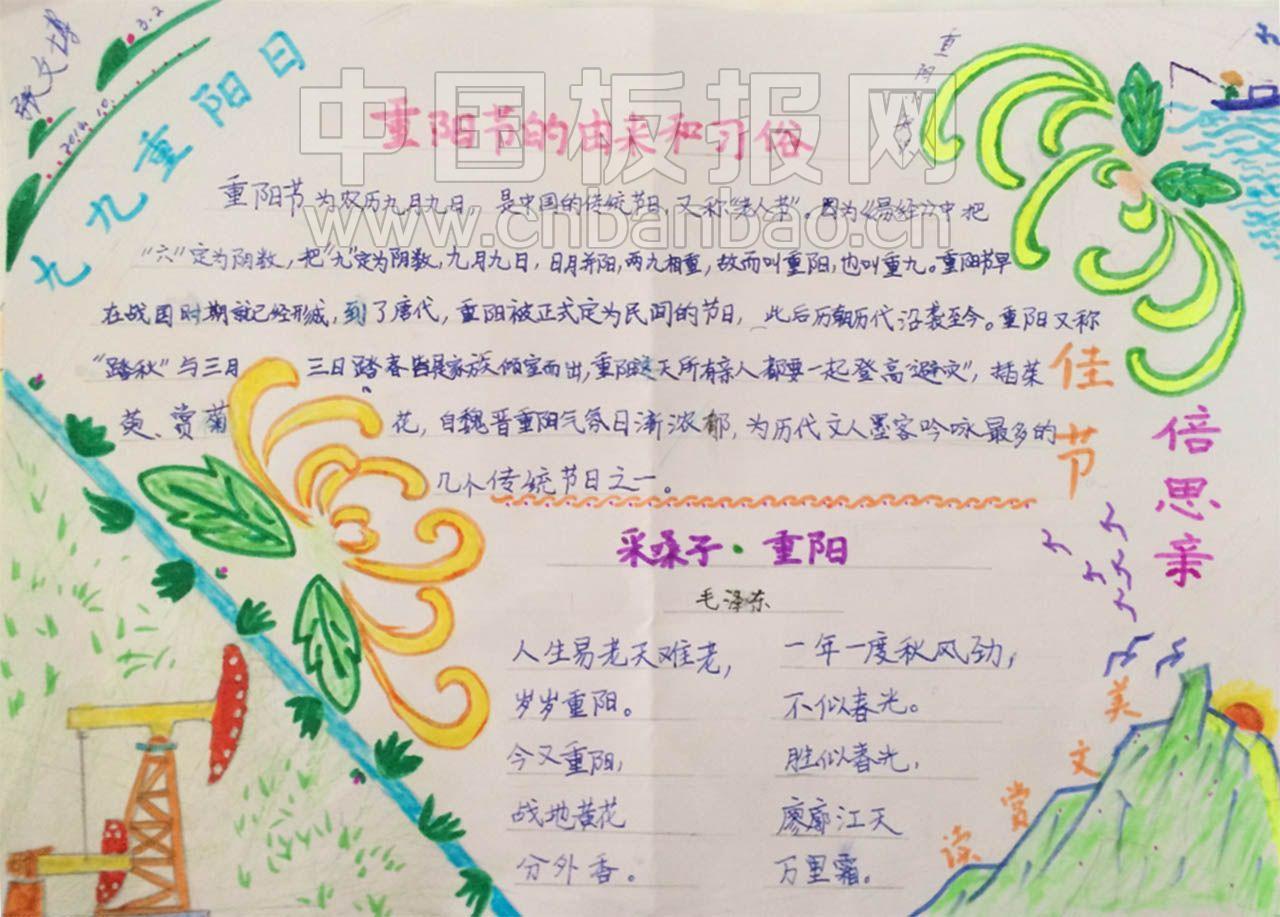 张文博
3.2
九九重阳日
重阳节的由来和习俗
中国板报网
www.cnbanbao.cn
重阳节为农历九月九日，是中国的传统节日，又称"老人节"。因为《易经》中把
"六"定为阴数，把"九"定为阳数，九月九日，日月并阳，两九相重，故而叫重阳，也叫重九。重阳节早
在战国时期就已经形成，到了唐代，重阳被正式定为民间的节日，此后历朝历代沿袭至今。重阳又称
"踏秋"与三月三日踏春皆是家族倾室而出，重阳这天所有亲人都要一起登高"避灾"，插茱
萸、赏菊花，自魏晋重阳气氛日渐浓郁，为历代文人墨客吟咏最多的
几个传统节日之一。
佳节
倍思亲
采桑子·重阳
毛泽东
人生易老天难老，
岁岁重阳。
今又重阳，
战地黄花
分外香。
一年一度秋风劲，
不似春光。
胜似春光，
廖廓江天
万里霜。
美文赏读